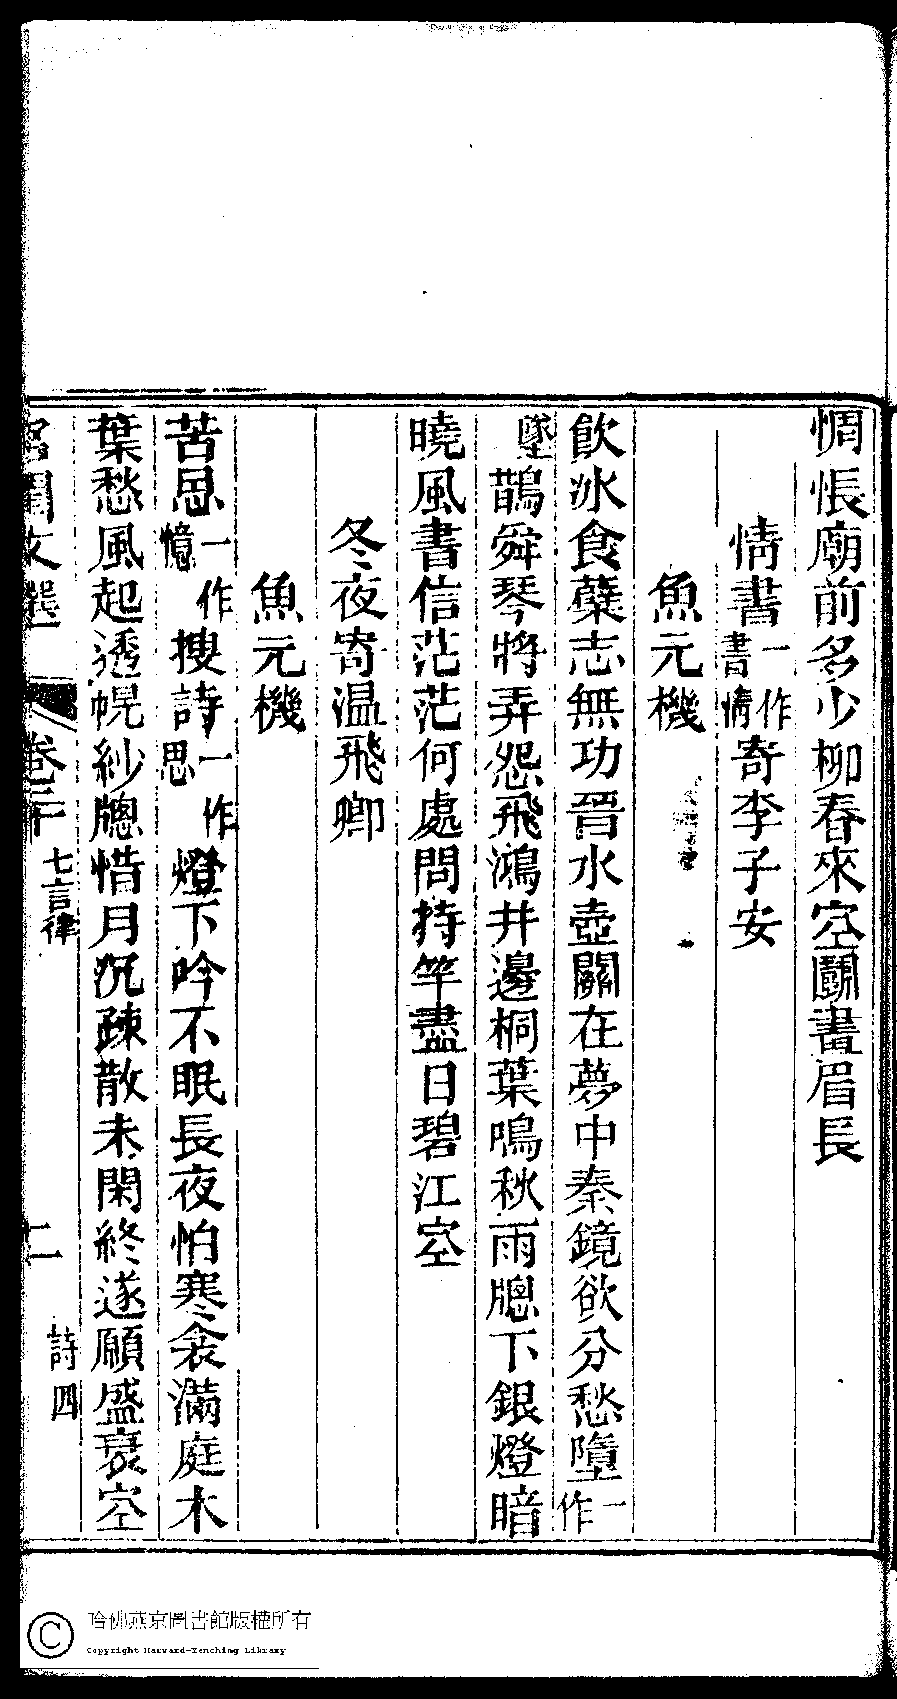 惆悵廟前多少柳春來空鬭畫眉長
情書一作書情寄李子安
魚元機
飲冰食蘗志無功晉水壺關在夢中秦鏡欲分愁墮一作
墜鵲舜琴將弄怨飛鴻井邊桐葉鳴秋雨牕下銀燈暗
曉風書信茫茫何處問持竿盡日碧江空
冬夜寄温飛卿
魚元機
苦思一作憶搜詩一作思燈下吟不眠長夜怕寒衾滿庭木
葉愁風起透幌紗牕惜月沉疎散未閑終遂願盛衰空
名閨文選 卷二十 七言律 二 詩四
哈佛燕京圖書館版權所有
Copyright Harvard-Yenching Library